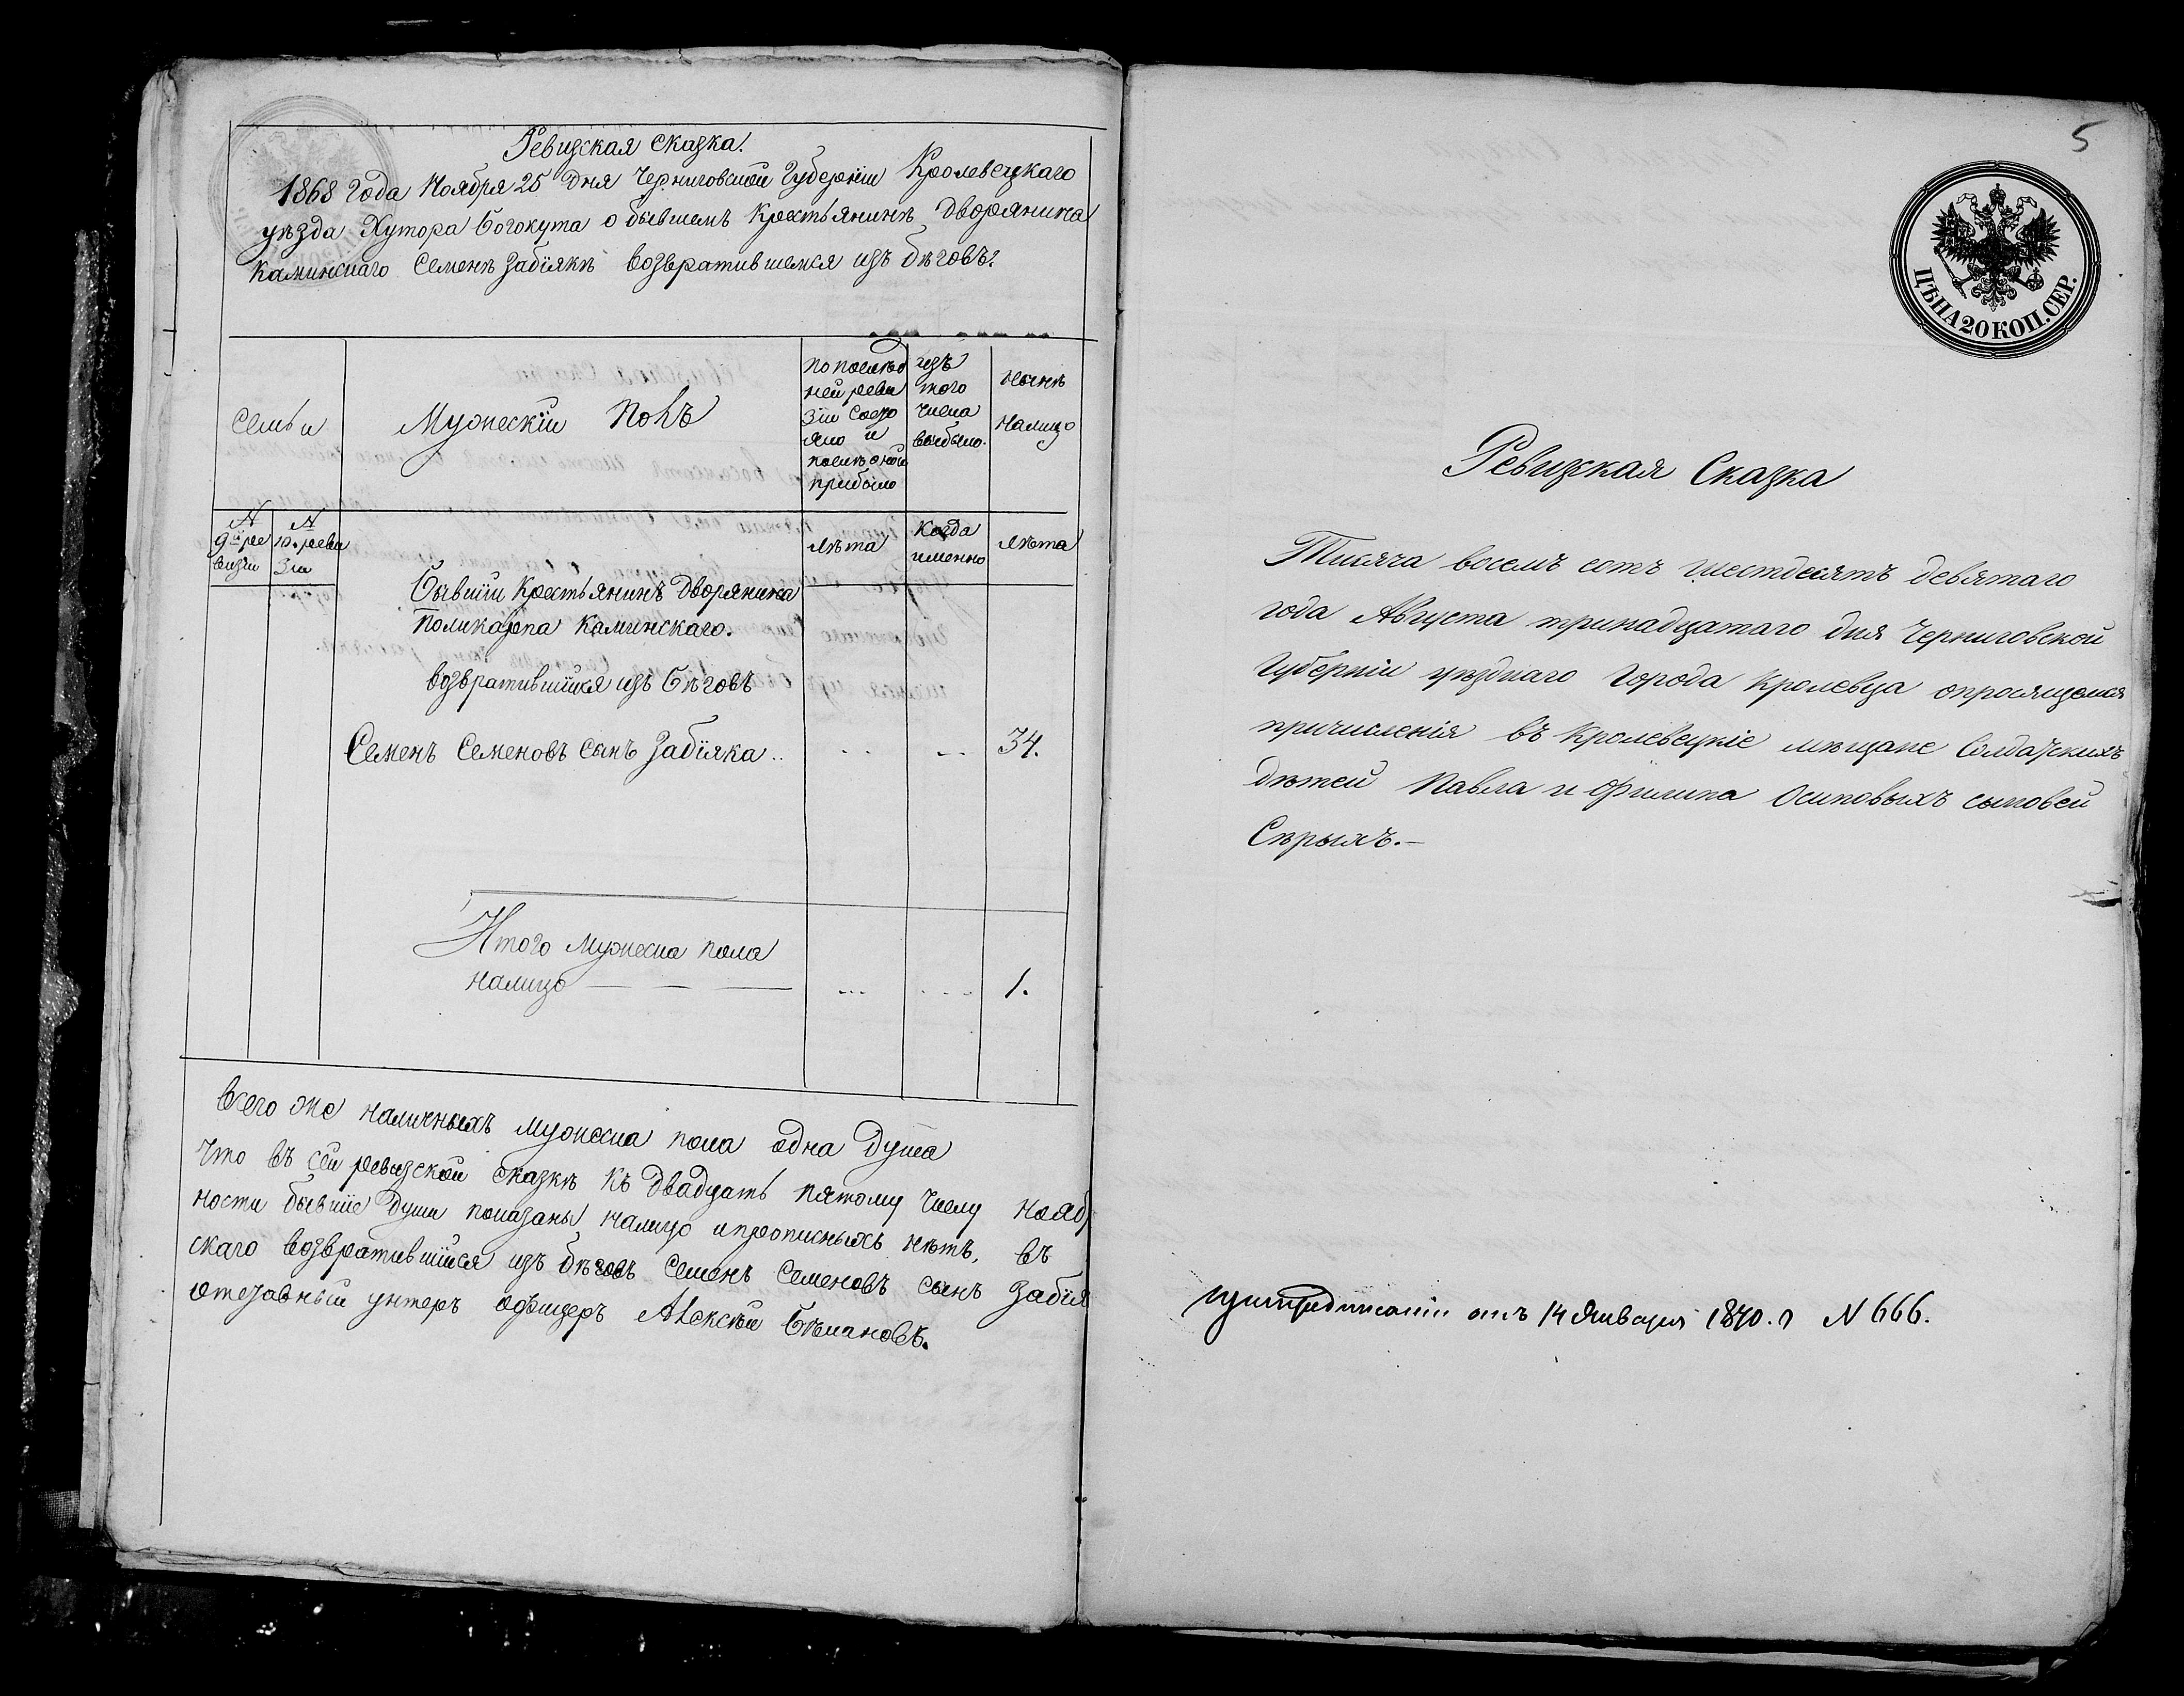 Ревизская сказка.
1868 года Ноября 25 дня Черниговской Губерніи Кролевецкаго
уѣзда Хутора Богокута о бывшемъ Крестьянинѣ Дворянина
Каминскаго Семенѣ Забіякѣ возвратившемся изъ бѣговъ.
Семьи
Мужескій Полъ
По послѣд
ней реви
зіи состо
яло и
послѣ оной
прибыло
изъ
того
числа
выбыло.
Нынѣ
налицо
№
9й ре
визіи
№
10й реви
зіи
Лѣта
Когда
именно
Лѣта
Бывшій Крестьянинъ Дворянина
Поликарпа Каминскаго.
возвратившійся изъ Бѣговъ
Семенъ Семеновъ сынъ Забіяка .. .. .. 34.
Итого мужеска пола
налицо — — — ... ... 1.
Всего же наличныхъ мужеска пола одна душа
Что въ сей ревизской сказкѣ къ двадцать пятому числу Нояб
ности бывшіе души показаны налицо и прописныхъ нѣтъ, въ
скаго возвратившійся изъ бѣговъ Семенъ Семеновъ сынъ Забія
отставный унтеръ офицеръ Алексѣй
5
ЦѢНА 20 КОП. СЕР.
Ревизская Сказка
Тисяча восемъ сотъ шестдесятъ девятаго
года Августа тринадцатаго дня Черниговской
Губерніи уѣзднаго Города Кролевца опросящемся
причисленія въ Кролевецкіе мѣщане Солдатскихъ
дѣтей Павла и Филипа Осиповыхъ сыновей
Сѣрыхъ.—
отъ 14 Января 1870. г № 666.